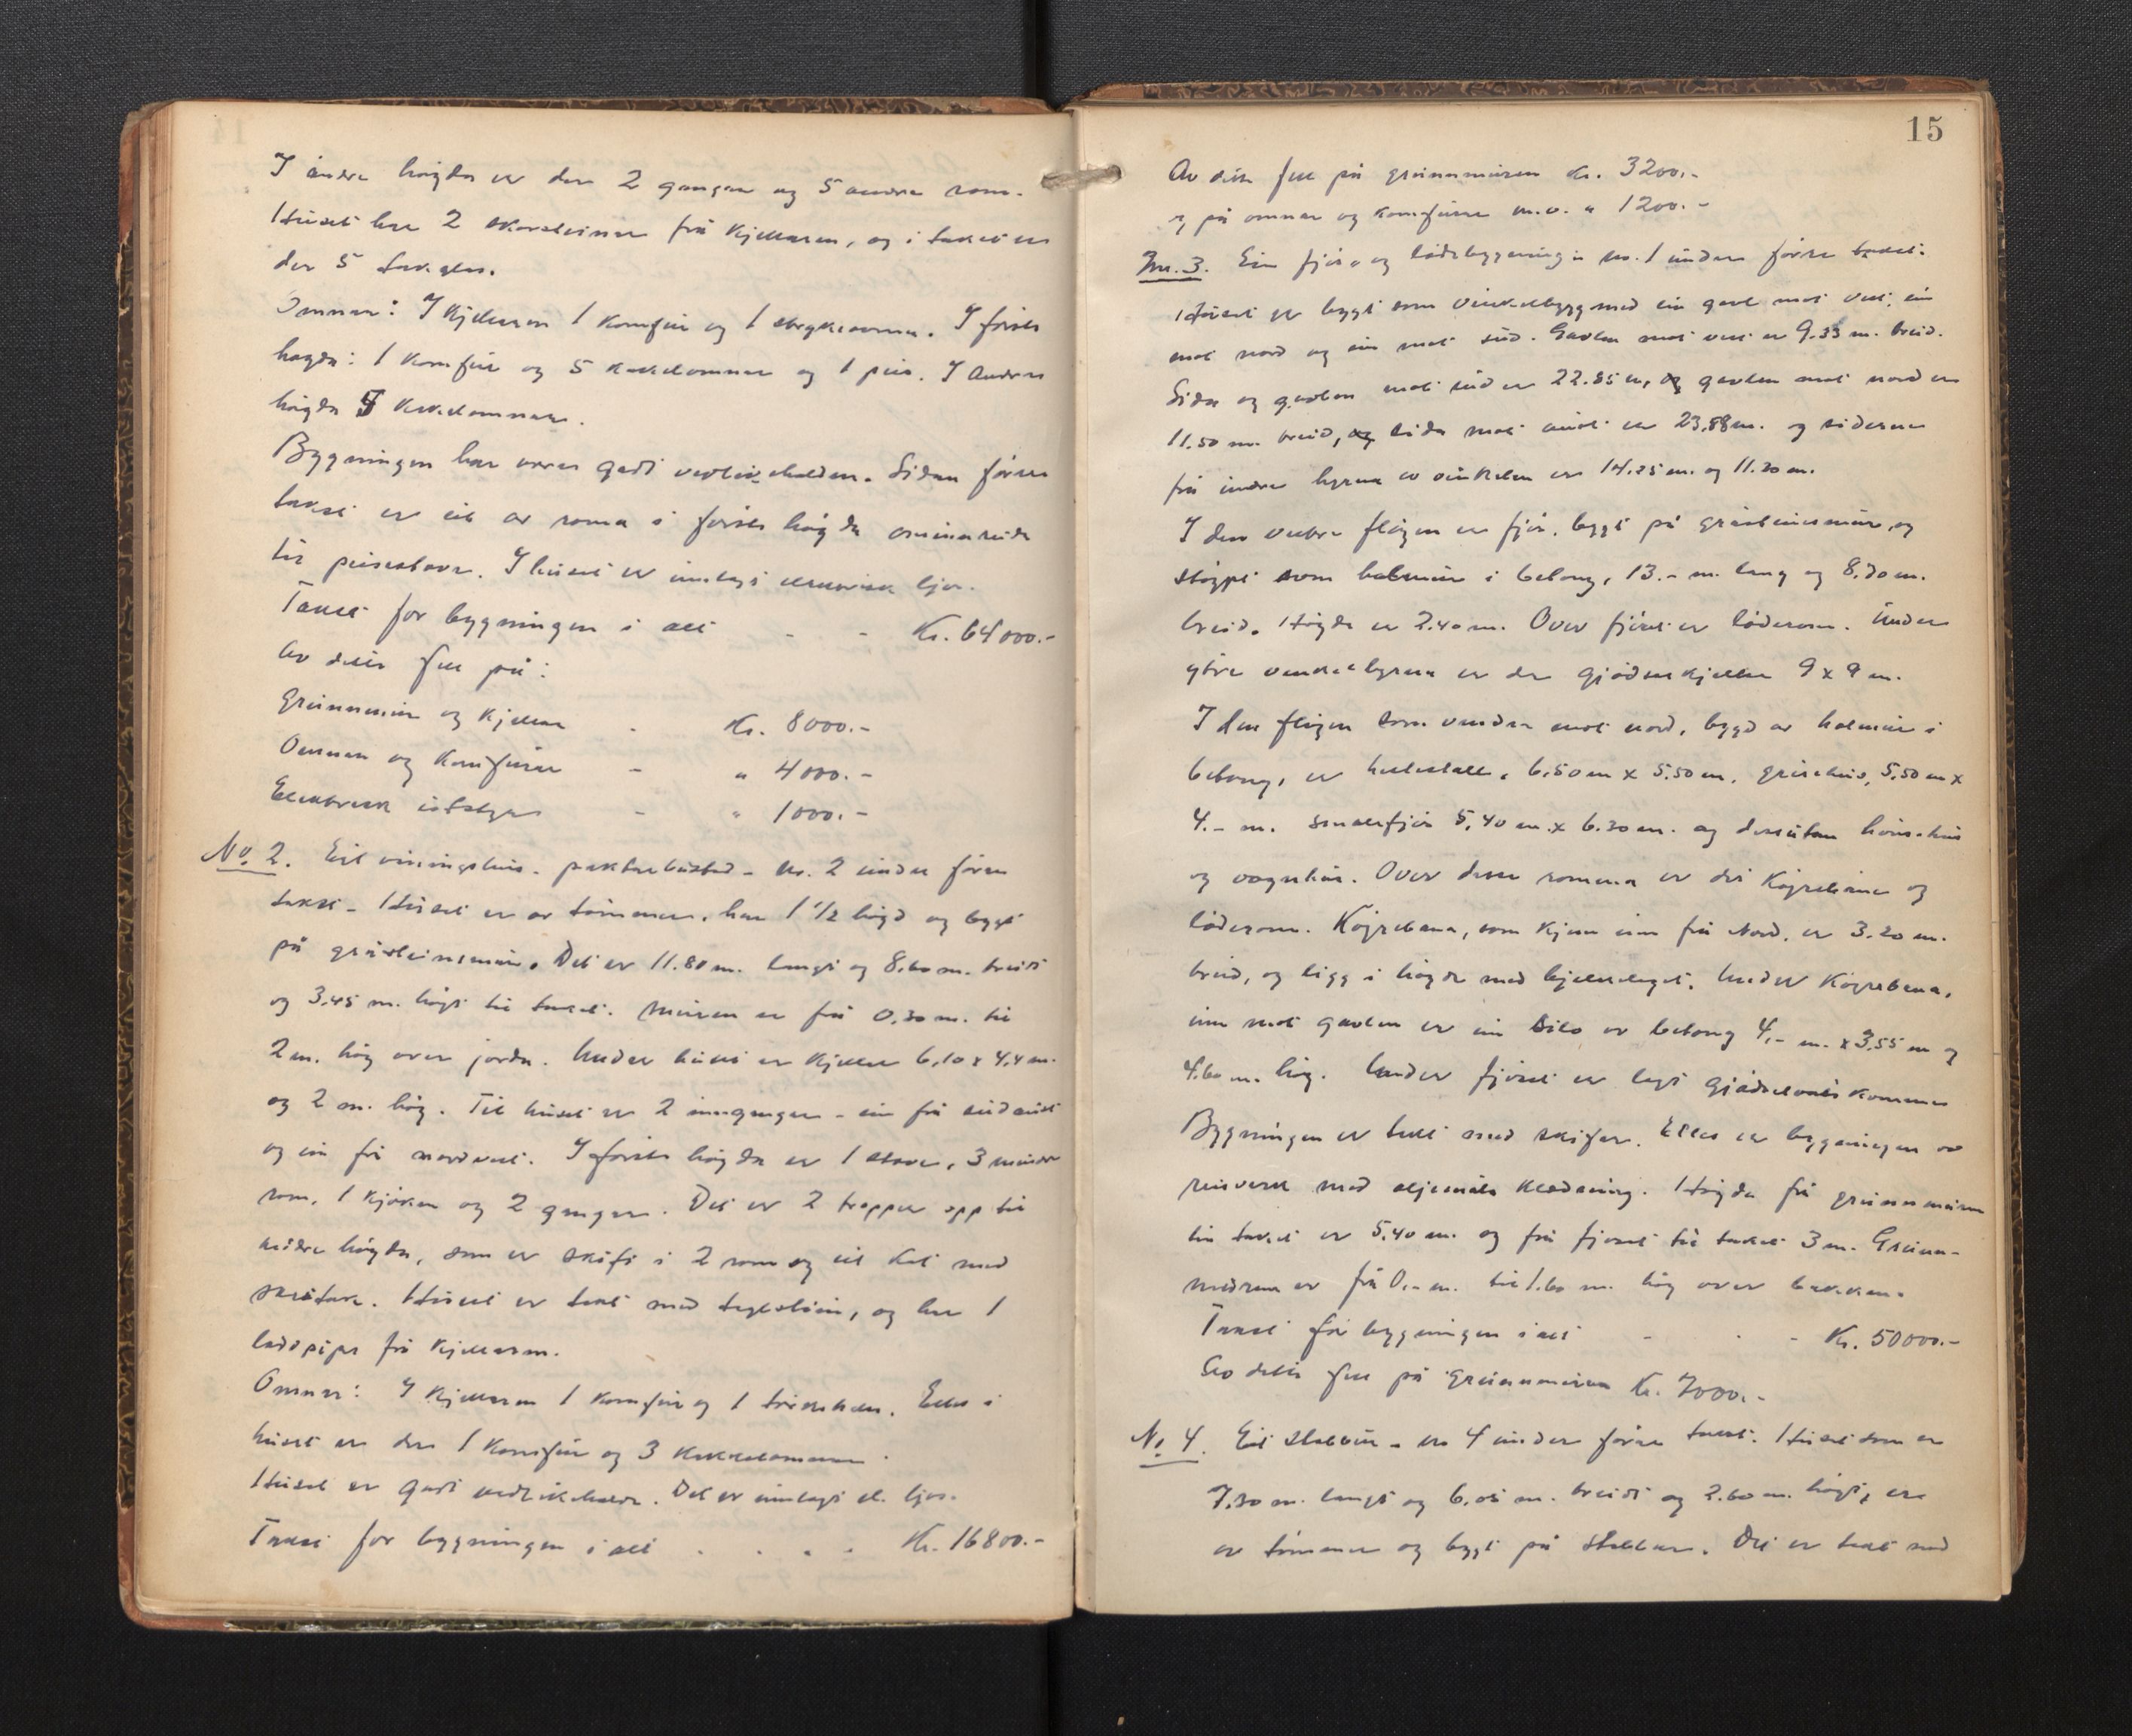 I andre høgda er der 2 gangar og 5 andre rom.
Huset har 2 skorsteinar frå kjellaren, og i taket er
der 5 takglas.
Omnar: I kjellaren 1 komfur og 1 strykeomn. I første
høgda: 1 komfur og 5 kakkelomnar og 1 peis. I andre
høgda 5 kakkelomnar.
Bygningen har vore godt vedlikehalden. Sidan førre
takst er eit av roma i første høgda ominnreidt
til peisestova. I huset er innlagt elektrisk ljos.
Takst for bygningen i alt - - Kr. 64000.-
Av dette fell på:
Grunnmur og kjellar - Kr. 8000.-
Omnar og komfurar - " 4000.-
Elektrisk utstyr - " 1000.-
No 2. Eit våningshus - paktarbustad - nr. 2 under førre
takst - Huset er av tømmer, har 1 1/2 høgd og bygt
på gråsteinsmur. Det er 11.80 m. langt og 8,60 m. breidt
og 3,45 m. høgt til taket. Muren er frå 0,30 m. til
2 m. høg over jorda. Under huset er kjellar 6,10 x 4,4 m.
og 2 m. høg. Til huset er 2 inngangar - ein frå sudaust
og ein frå nordvest. I første høgda er 1 stove, 3 mindre
rom, 1 kjøken og 2 gangar. Det er 2 trapper opp til
andre høgda, som er skift i 2 rom og eit loft med
skråtak. Huset er tekt med teglstein, og har 1
laddpipe frå kjellaren.
Omnar: I kjellaren 1 komfur og 1. Elles i
huset er der 1 komfur og 3 kakkelomnar.
Huset er godt vedlikehalde. Det er innlagt el. ljos.
Takst for bygningen i alt . . . . Kr. 16800.-
15
Av dette fell på grunnmuren Kr. 3200.-
og på omnar og komfurar m.v. " 1200.-
Nr. 3. Ein fjøs- og lødebygning - nr. 1 under førre takst.
Huset er bygt som vinkelbygg med ein gavl mot vest, ein
mot nord og ein mot sud. Gavlen mot vest er 9.33 m. breid.
Sida og gavlen mot sud er 22.85 m, og gavlen mot nord er
11.50 m. breid, og sida mot aust er 23,88 m. og sidene
frå indre hyrna av vinkelen er 14.25 m. og 11.20 m.
I den vestre fløyen er fjøs, bygt på gråsteinsmur, og
støypt som holmur i betong, 13.- m. lang og 8,70 m.
breid. Høgda er 2.40 m. Over fjøset er løderom. Under
ytre vinkelhyrna er der gjødselkjellar 9 x 9 m.
I den fløyen som vender mot nord, bygd av holmur i
betong, er hestestall, 6,50 m x 5.50 m, grisehus, 5,50 m x
4.- m. smalefjøs 5,40 m. x 6.30 m. og dessutan hønsehus
og vognhus. Over desse romma er det køyrebane og
løderom. Køyrebana, som kjem inn frå nord, er 3.20 m.
breid, og ligg i høgde med bjelkelaget. Under køyrebana,
inn mot gavlen er ein silo av betong 4,- m. x 3,55 m og
4.60 m. høg. Under fjøset er lagt gjødselvatskummar
Bygningen er tekt med skifer. Elles er bygningen av
reisverk med oljemåla kledning. Høgda frå grunnmuren
til taket er 5,40 m. og frå fjøset til taket 3 m. Grunn-
muren er frå 0.- m. til 1.60 m. høg over bakken.
Takst for bygningen i alt - - - Kr. 50000.-
Av dette fell på grunnmuren Kr. 7000.-
No 4. Eit stabbur - nr 4 under førre takst. Huset som er
7,30 m. langt og 6,05 m. breidt og 2.60 m. høgt, er
av tømmer og bygt på stabbar. Det er tekt med